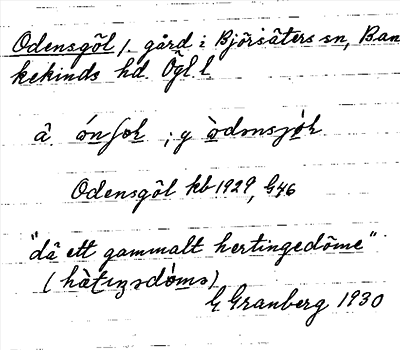 Odensgöl /. gård i Björsäters sn, Ban
kekinds hd. Ögl. l
ä. ónʃơḷ ; y òdənsjö́ḷ.
Odensgöl kb 1929, G46
"dä ett gammalt hertingedöme"
(hàtıŋədö̀mə)
G Granberg 1930